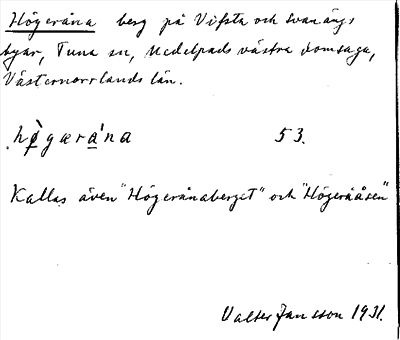 Högeråna berg på Vifsta och Svanängs
byar, Tuna sn, Medelpads västra domsaga,
Västernorrlands län.
hø̀gærána 53.
Kallas även "Högerånaberget" och "Högeråsen"
Valter Jansson 1931.